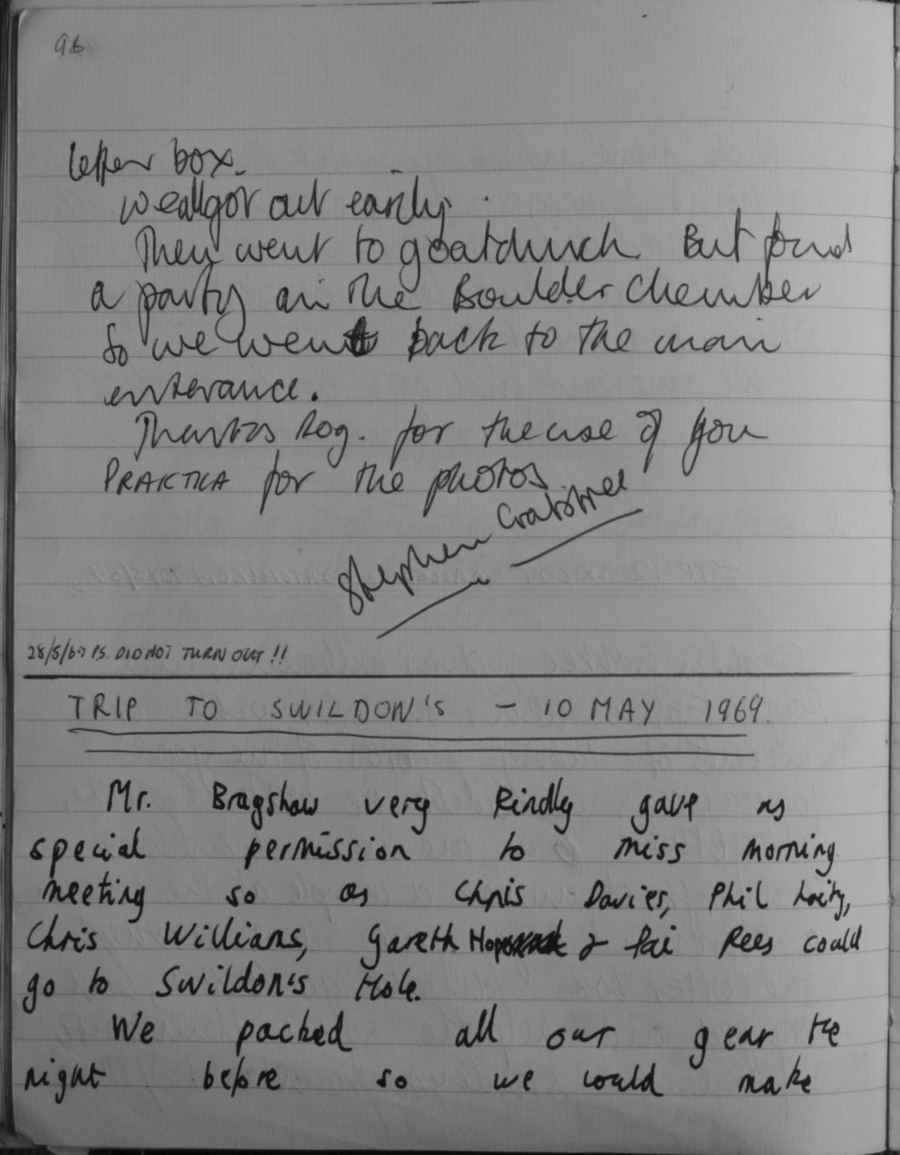 96
letter box.
we all got out easily.
Then went to goatchurch. But found
a party in the Boulder Chember
So we went back to the main
enterance.
Thanks Rog. for the use of you
PRAKTICA for the photos
Stephen Crabtree
28/5/69 PS. DID NOT TURN OUT !!
TRIP TO SWILDON'S - 10 MAY 1969.
Mr. Bragshaw very kindly gave us
special permission to miss morning
meeting so as Chris Davies, Phil
Chris Williams, Gareth & Rees could
go to Swildon's Hole.
We packed all our gear the
night before so we could make